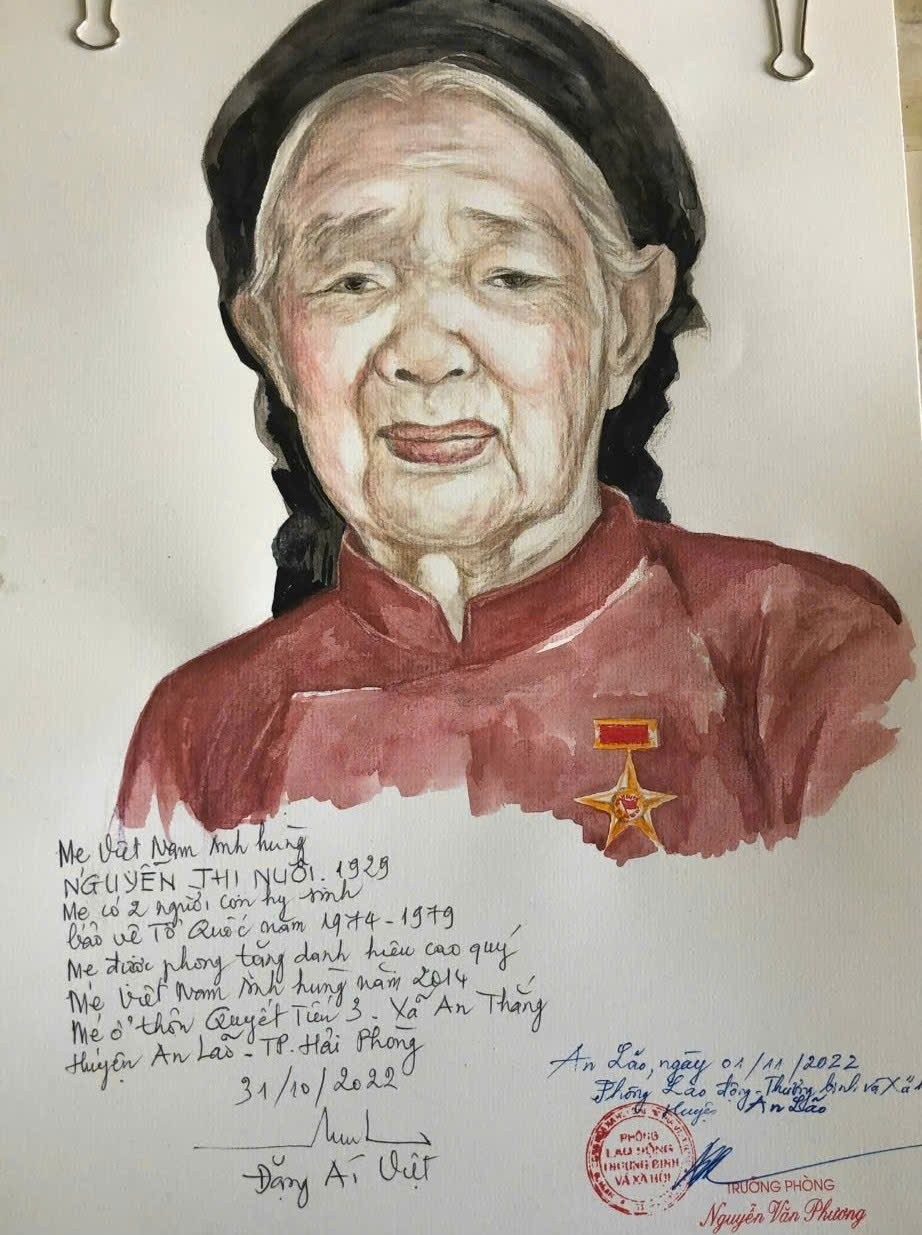 Mẹ Việt Nam Anh hùng
NGUYỄN THỊ NUÔI. 1929
Mẹ có 2 người con hy sinh
bảo vệ Tổ Quốc năm 1974-1979
Mẹ được phong tặng danh hiệu cao quý
Mẹ Việt Nam Anh hùng năm 2014
Mẹ ở thôn Quyết Tiến 3 - Xã An Thắng
Huyện An Lão - TP. Hải Phòng
31/10/2022
Đặng Ái Việt
An Lão, ngày 01/11/2022
Phòng Lao động - Thương binh và Xã
Huyện An Lão
PHÒNG
LAO ĐỘNG
THƯƠNG BINH
VÀ XÃ HỘI
TRƯỞNG PHÒNG
Nguyễn Văn Phương